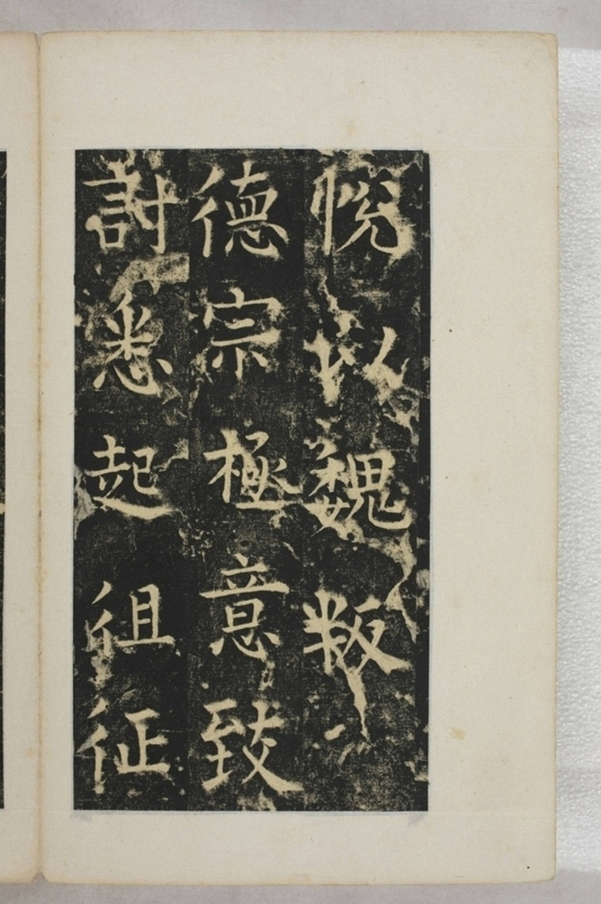 悅以魏叛
德宗極意致
討悉起徂征